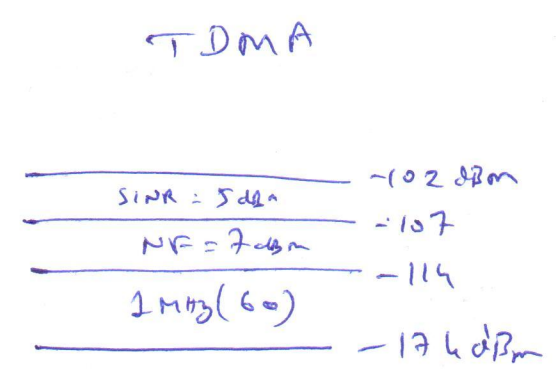 TDMA
-102 dBm
SINR = 5 dBm
-107
NF = 7 dBm
-114
1 MHz (60)
-174 dBm